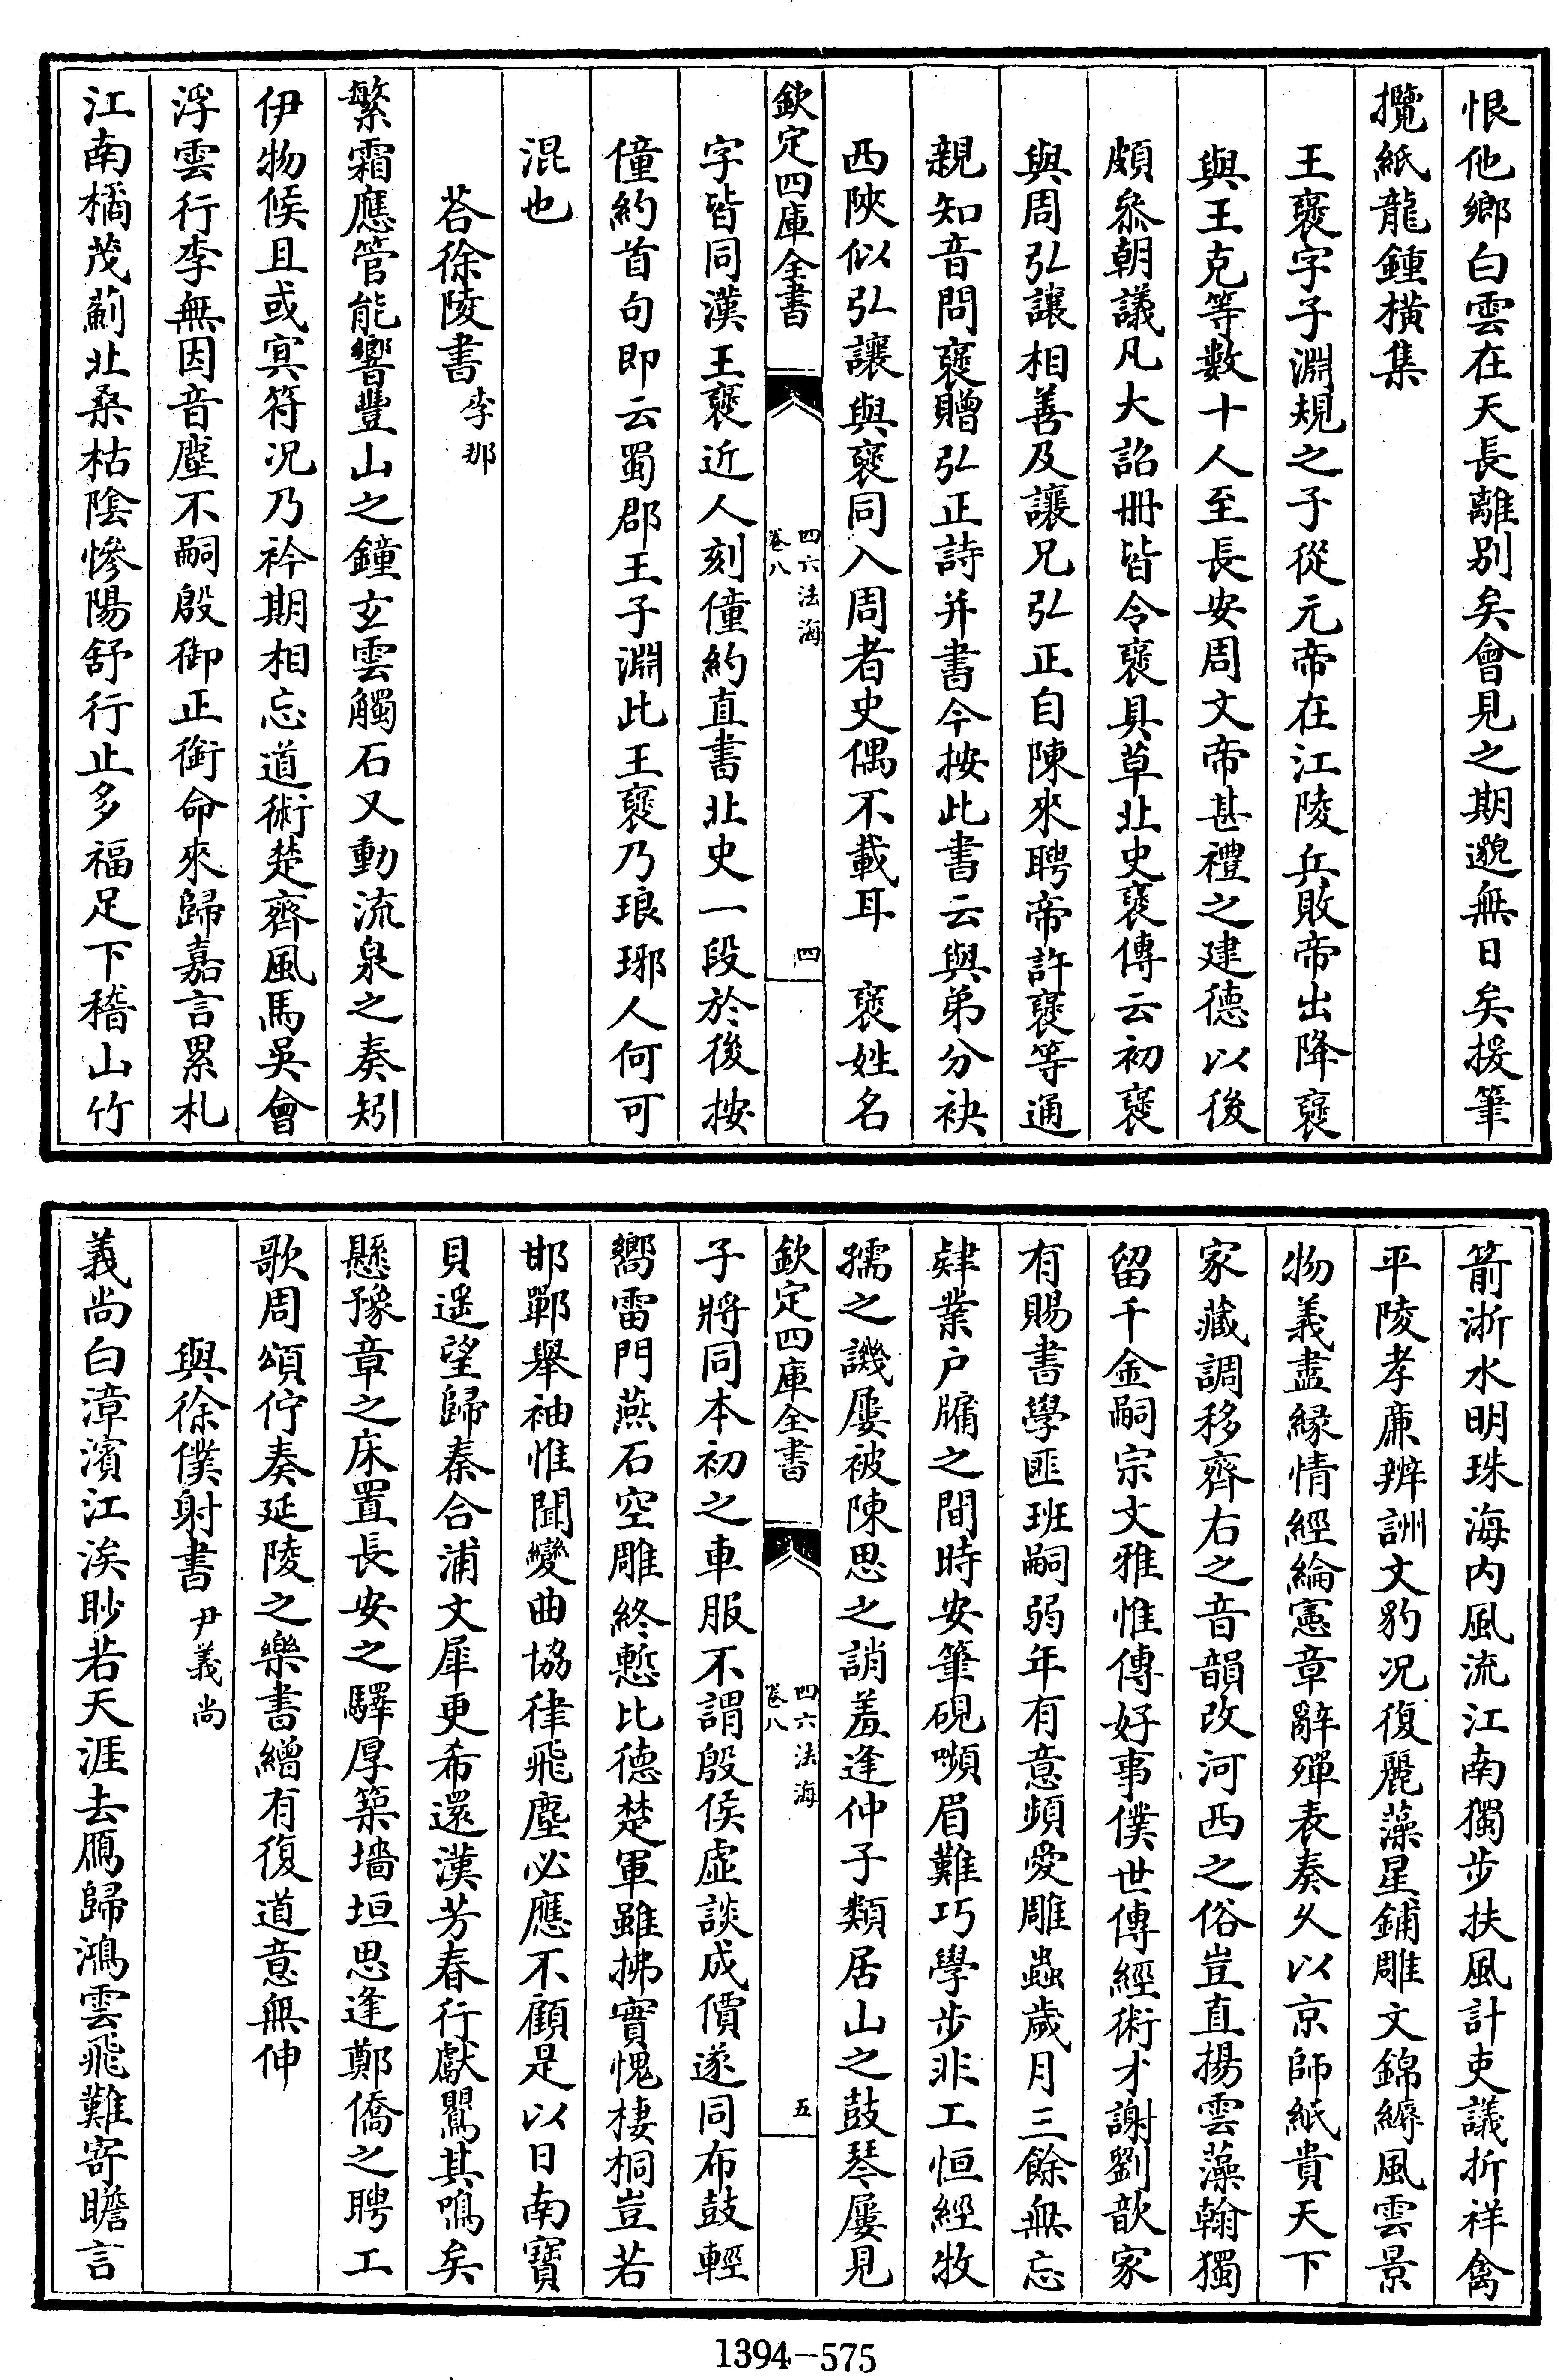 恨他鄉白雲在天長離別矣會見之期邈無日矣援筆
攬紙龍鍾橫集
王襃字子淵規之子從元帝在江陵兵敗帝出降襃
與王克等數十人至長安周文帝甚禮之建德以後
頗叅朝議凡大詔冊皆令襃具草北史襃傳云初襃
與周弘讓相善及讓兄弘正自陳來聘帝許襃等通
親知音問襃贈弘正詩并書今按此書云與弟分袂
西陜似弘讓與襃同入周者史偶不載耳　襃姓名
欽定四庫全書
四六法海
卷八
四
字皆同漢王襃近人刻僮約直書北史一段於後按
僮約首句即云蜀郡王子淵此王襃乃琅琊人何可
混也
荅徐陵書李那
繁霜應管能響豐山之鐘玄雲觸石又動流泉之奏矧
伊物候且或寘符况乃衿期相忘道術楚齊風馬吳會
浮雲行李無因音塵不嗣殷御正銜命來歸嘉言累札
江南橘茂薊北桑枯陰慘陽舒行止多福足下稽山竹
箭浙水明珠海內風流江南獨步扶風計吏議折祥禽
平陵孝亷辨詶文豹况復麗藻星鋪雕文錦縟風雲景
物義盡緣情經綸憲章辭殫表奏久以京師紙貴天下
家藏調移齊右之音韻改河西之俗豈直揚雲藻翰獨
留千金嗣宗文雅惟傳好事僕世傳經術才謝劉歆家
有賜書學匪班嗣弱年有意頻愛雕蟲歲月三餘無忘
肄業户牖之間時安筆硯嚬眉難巧學步非工恒經牧
孺之譏屢被陳思之誚羞逢仲子類居山之鼓琴屢見
欽定四庫全書
四六法海
卷八
五
子將同本初之車服不謂殷侯虛談成價遂同布鼓輕
嚮雷門燕石空雕終慙比德楚軍雖拂實愧棲桐豈若
邯鄲舉袖惟聞變曲協律飛塵必應不顧是以日南寶
貝遥望歸秦合浦文犀更希還漢芳春行獻鸎其鳴矣
懸豫章之床置長安之驛厚築墻垣思逢鄭僑之聘工
歌周頌佇奏延陵之樂書繒有復道意無伸
與徐僕射書尹義尚
義尚白漳濱江涘眇若天涯去鴈歸鴻雲飛難寄瞻言
1394-575